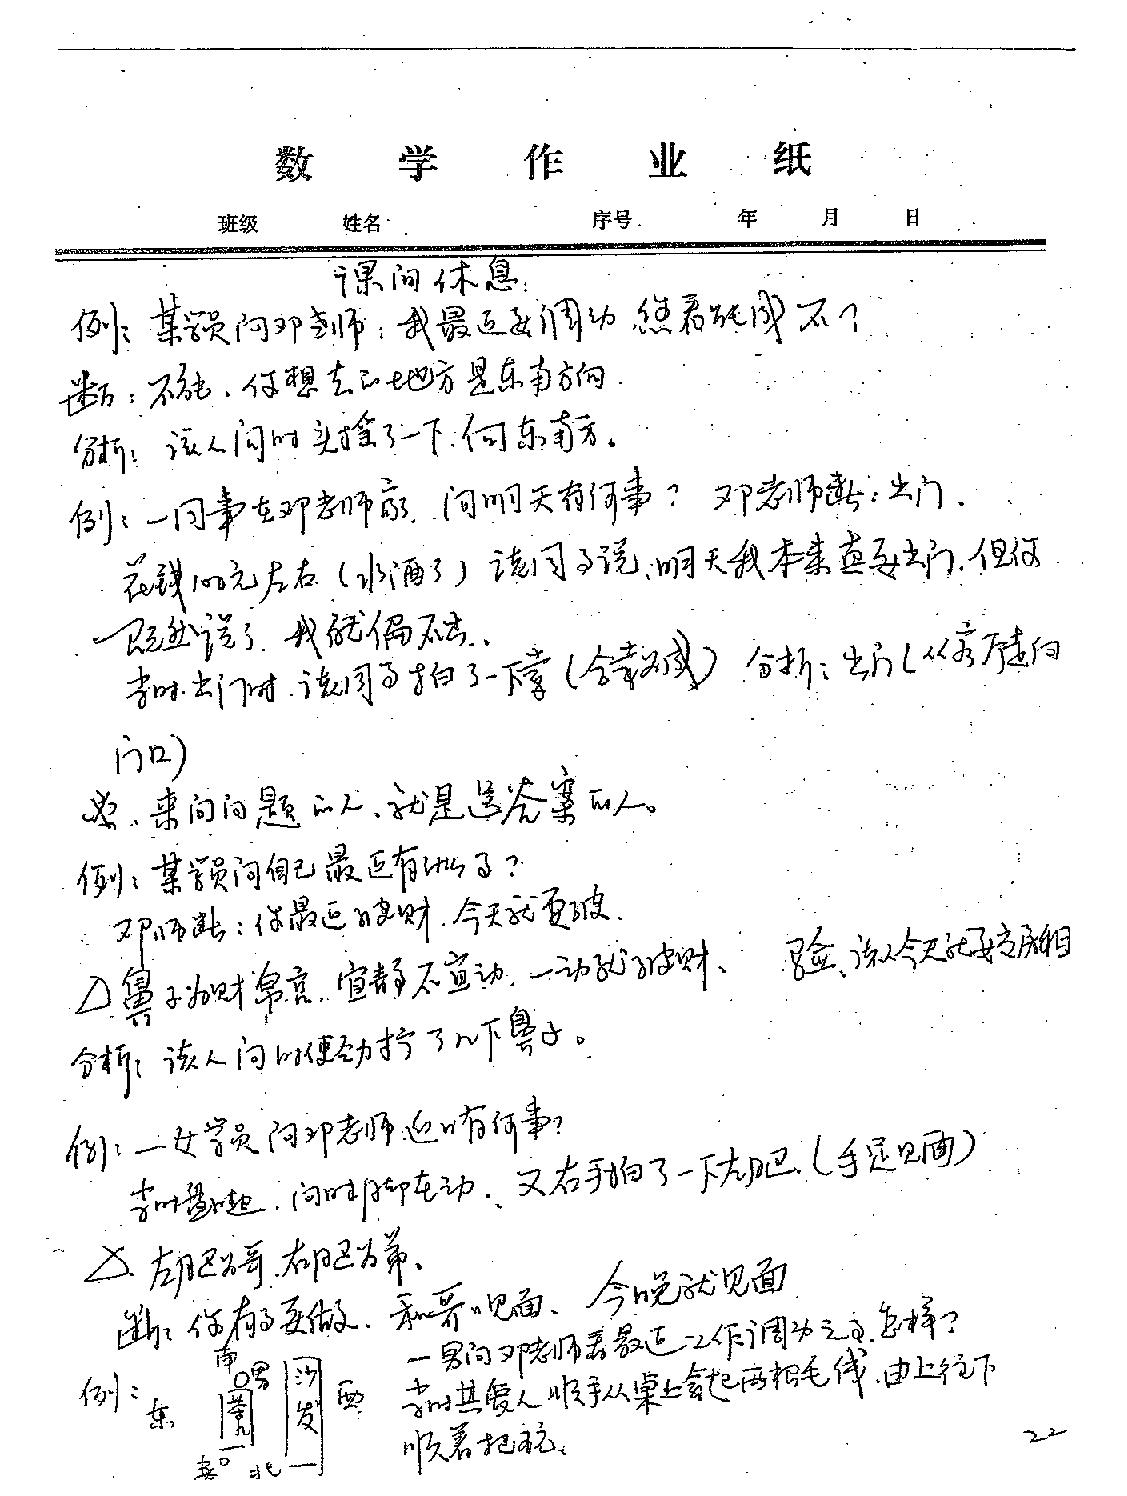 数学作业纸
班级 姓名 序号 年 月 日
课间休息:
例:某学员问邓老师:我最近要调动 您看能成不?
断:不能、你想去的地方是东南方向.
分析:该人问时头抬了一下.向东南方。
例:一同事在邓老师家、问明天有何事?邓老师断:出门.
花钱100元左右(水酒了)该同事说、明天我本来真要出门.但你
既然说了、我就偏不去.
当时出门时.该同事拍了一下掌 分析:出门(从客厅走向
门口)
来问问题的人、就是送答案的人。
例:某学员问自己最近有什么事?
邓师断:你最近破财.今天就要破.
△鼻子为财帛宫.宜静不宜动.一动就破财、 该人今天就要
分析:该人问时使劲拧了几下鼻子。
例:一女学员问邓老师近日有何事?
当时 问时脚在动、又右手拍了一下左胳.(手足见面)
△左胳为哥.右胳为弟、
断:你有事要做、和哥哥见面、今晚就见面
例:一男问邓老师看最近工作调动之事.怎样?
当时其爱人顺手从桌上拿起两根毛线.由上往下
顺着
南
男
沙发
西
东
茶几
北
22